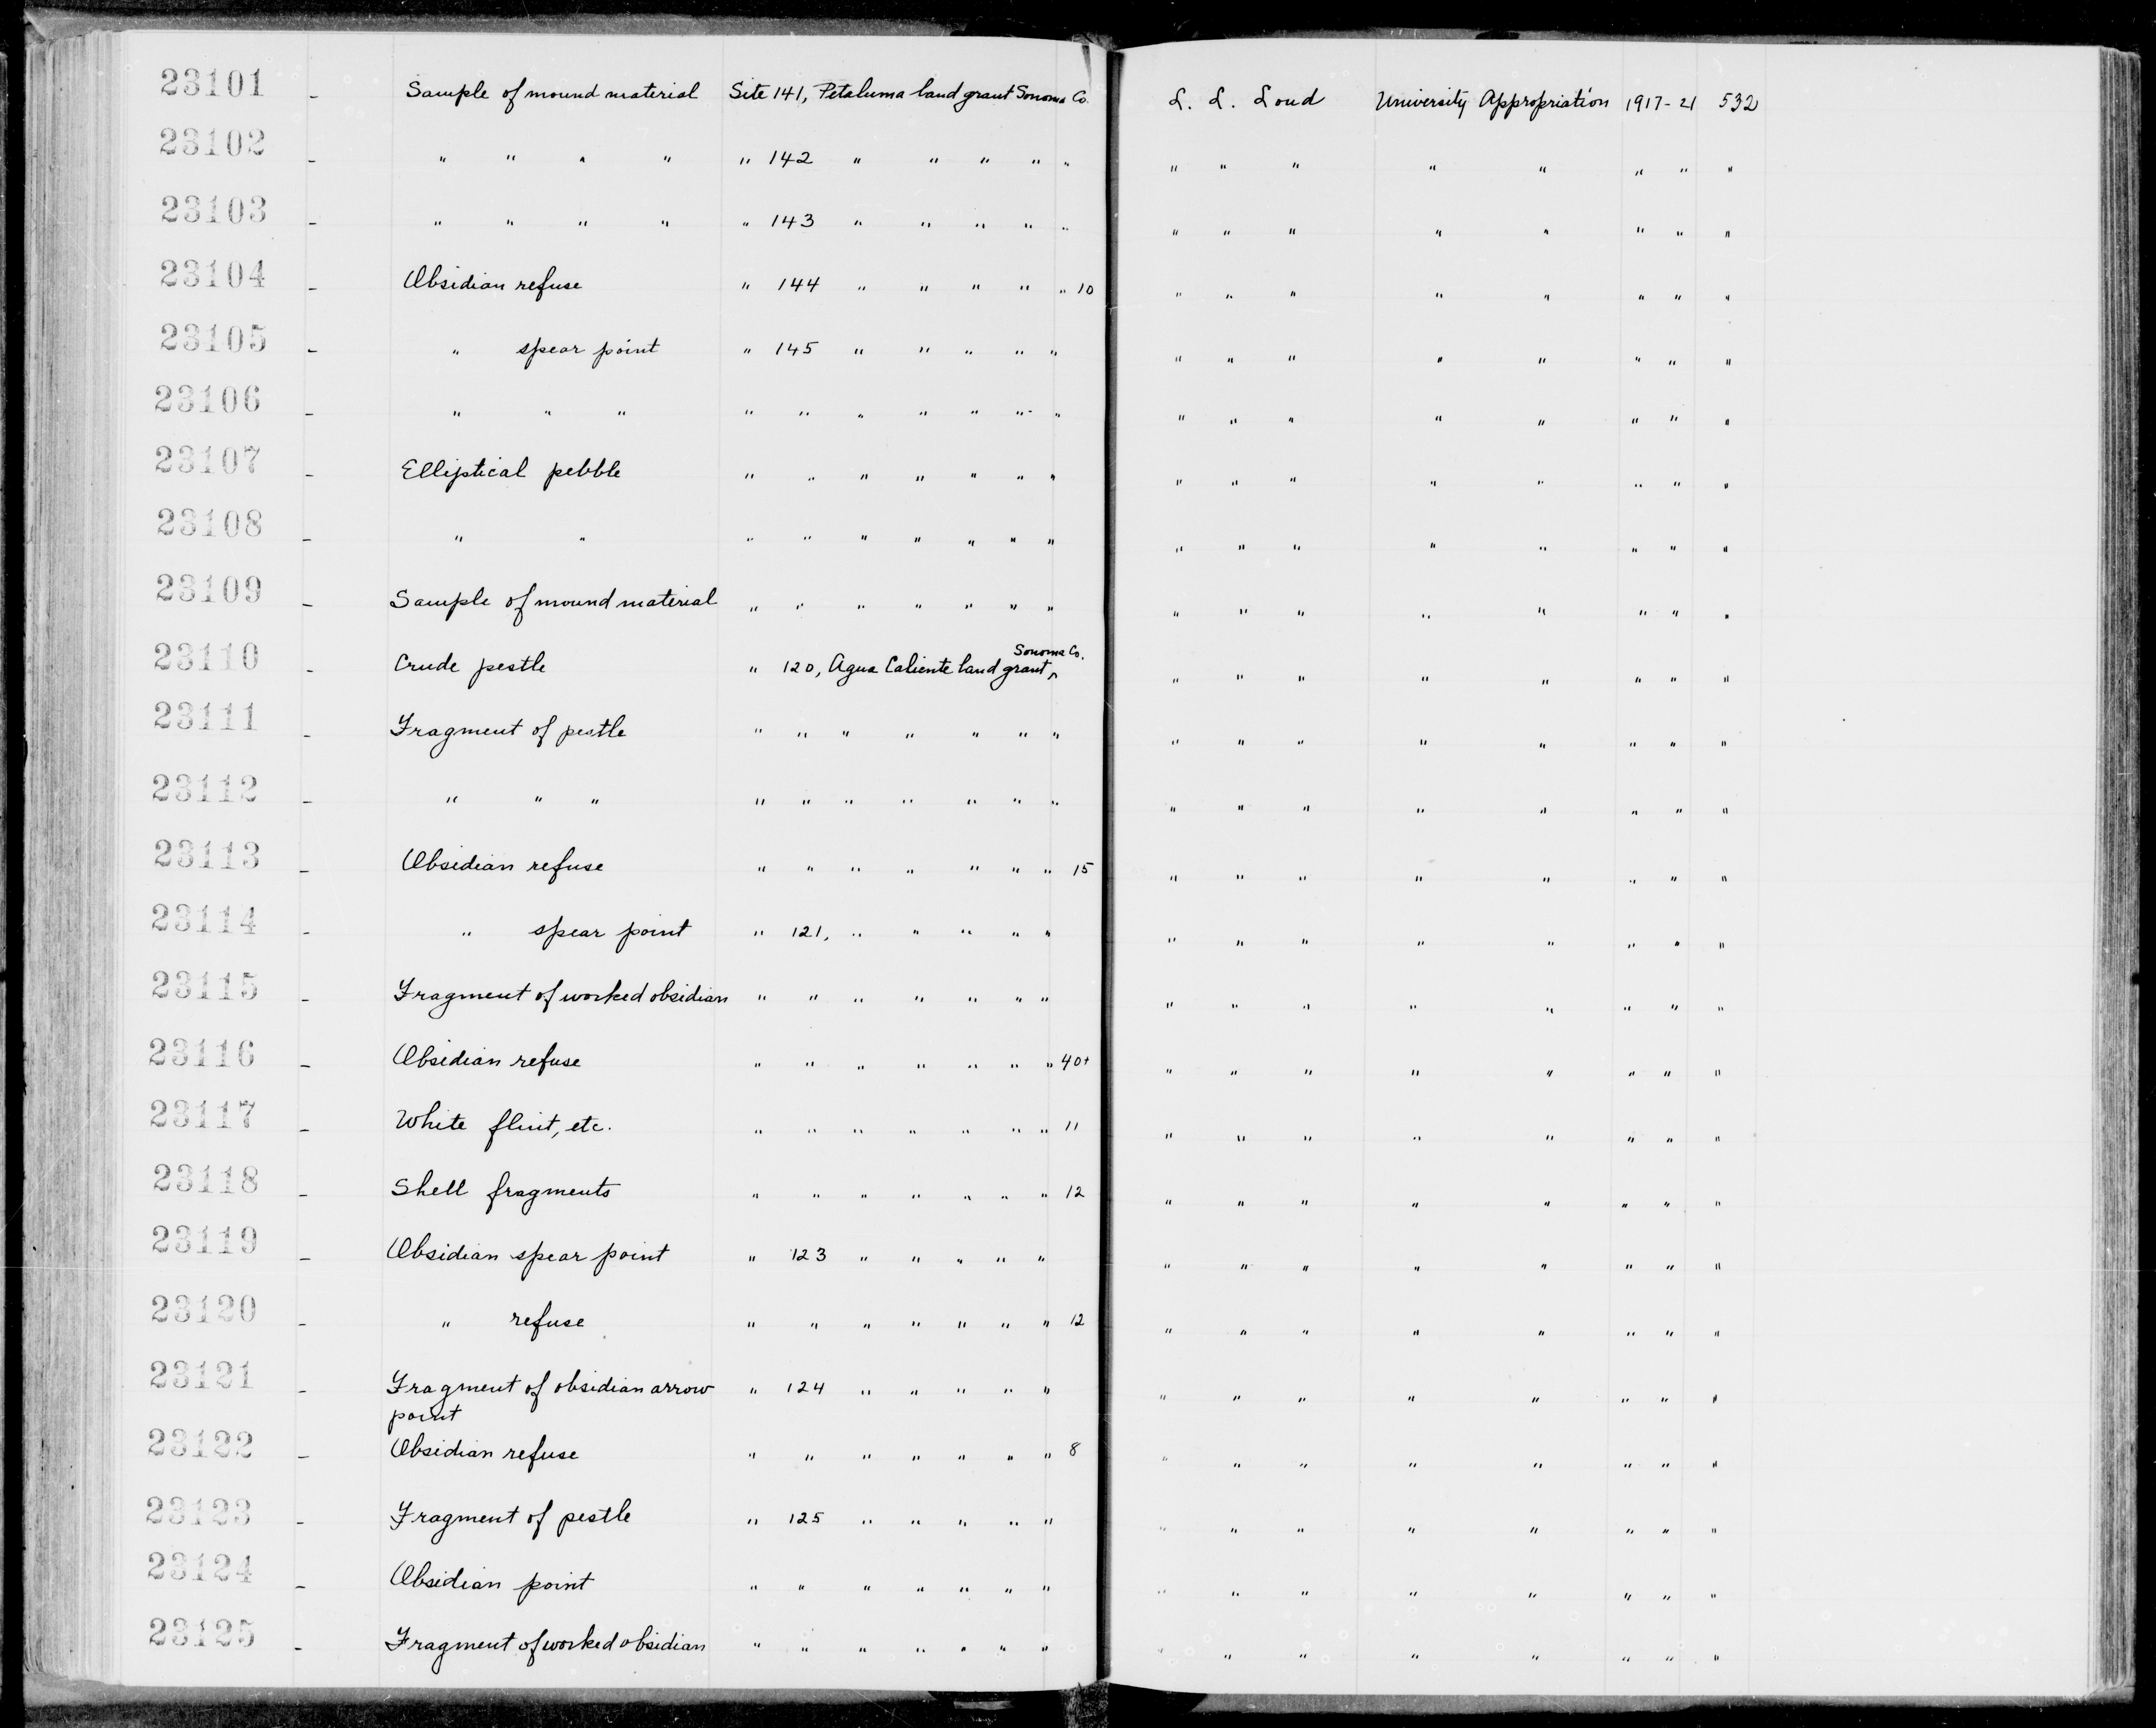 23101 - Sample of mound material Site 141, Petaluma land grant Sonoma Co. L. L. Loud University Appropriation 1917-21 532
23102 - " " " " " 142 " " " " " " " " " " " " "
23103 - " " " " " 143 " " " " " " " " " " " " "
23104 - Obsidian refuse " 144 " " " " " 10 " " " " " " " "
23105 - " spear point " 145 " " " " " " " " " " " " "
23106 - " " " " " " " " " " " " " " " " " "
23107 - Elliptical pebble " " " " " " " " " " " " " " "
23108 - " " " " " " " " " " " " " " " " "
23109 - Sample of mound material " " " " " " " " " " " " " " "
23110 - Crude pestle " 120, Agua Caliente land grant, Sonoma Co. " " " " " " " "
23111 - Fragment of pestle " " " " " " " " " " " " " " "
23112 - " " " " " " " " " " " " " " " " " "
23113 - Obsidian refuse " " " " " " " 15 " " " " " " " "
23114 - " spear point " 121, " " " " " " " " " " " " "
23115 - Fragment of worked obsidian " " " " " " " " " " " " " " "
23116 - Obsidian refuse " " " " " " " 40+ " " " " " " " "
23117 - White flint, etc. " " " " " " " 11 " " " " " " " "
23118 - Shell fragments " " " " " " " 12 " " " " " " " "
23119 - Obsidian spear point " 123 " " " " " " " " " " " " "
23120 - " refuse " " " " " " " 12 " " " " " " " "
23121 - Fragment of obsidian arrow " 124 " " " " " " " " " " " " "
point
23122 - Obsidian refuse " " " " " " " 8 " " " " " " " "
23123 - Fragment of pestle " 125 " " " " " " " " " " " " "
23124 - Obsidian point " " " " " " " " " " " " " " "
23125 - Fragment of worked obsidian " " " " " " " " " " " " " " "